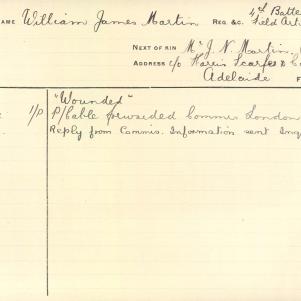 NAME William James Martin REG &c. 4th Batte
Field Art
NEXT OF KIN Mr J. N. Martin,
ADDRESS c/o Harris Scarfe &
Adelaide F
"Wounded"
1/P P/Cable forwarded Commis London
Reply from Commis. Information sent Inq